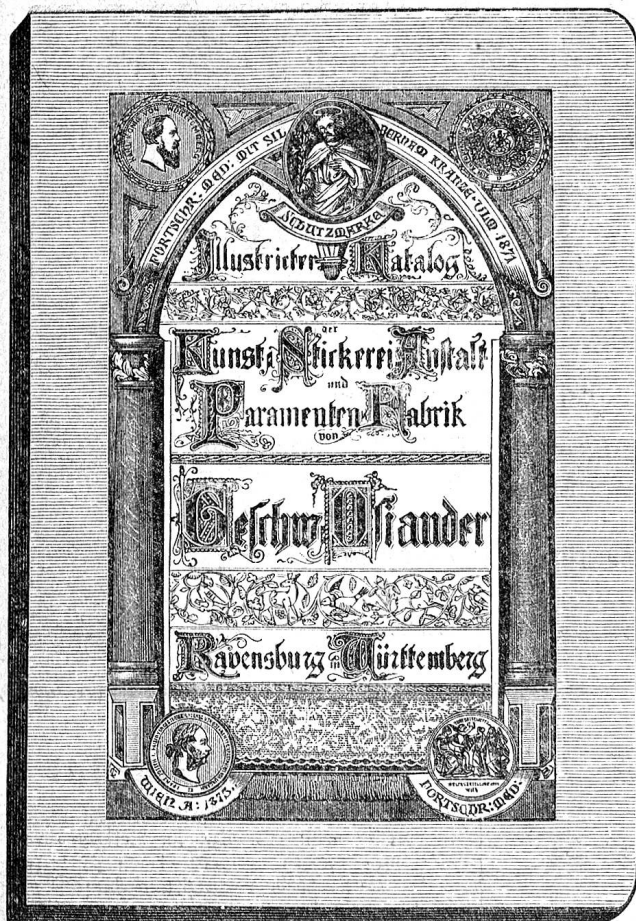 FORTSCHR: MED: MIT SILBERNEM KRANZE · ULM 1871
SCHUTZMARKE
Illustrierter Katalog
der
Kunst-Stickerei-Anstalt
und
Paramenten-Fabrik
von
Geschw. Osiander
Ravensburg in Württemberg
WIEN A: 1873.
FORTSCHR: MED: